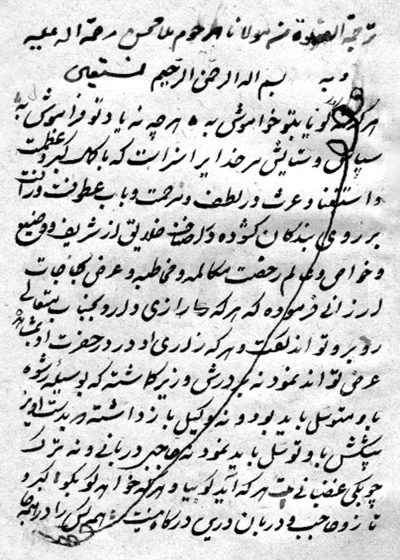 ترجمة الصلوة من مولانا مرحوم ملا محسن رحمة اله عليه
و به بسم اله الرحمن الرحیم نستعین
هر که نه گویا بتو خاموش به هر چه نه یاد تو فراموش به
سپاس و ستایش مر خدایرا سزاست که با کمال کبر و عظمت
و استغنا و عزت در لطف و مرحمت و باب عطوفت و رأفت
بر روی بندکان کشوده و اصناف خلایق از شریف و وضیع
و خواص و عوام رخصت مکالمه و مخاطبه و عرض حاجات
ارزانی فرموده که هر که را رازی در دل بجناب متعالی
رو برو تواند گفت و هر که زاری دارد در حضرت او
عرض تواند نمود نه بر درش وزیر کاشته که بوسیله رشوه
با و متوسل باید بود و نه وکیل باز داشته
پیشکش با و توسل باید نمود نه حاجبی دربانی و نه ترک
چوبکی غضبانی هر که آید گو بیا و هر که خواهد گو بگو کبر و
ناز و حاجب و دربان درین درگاه نیست